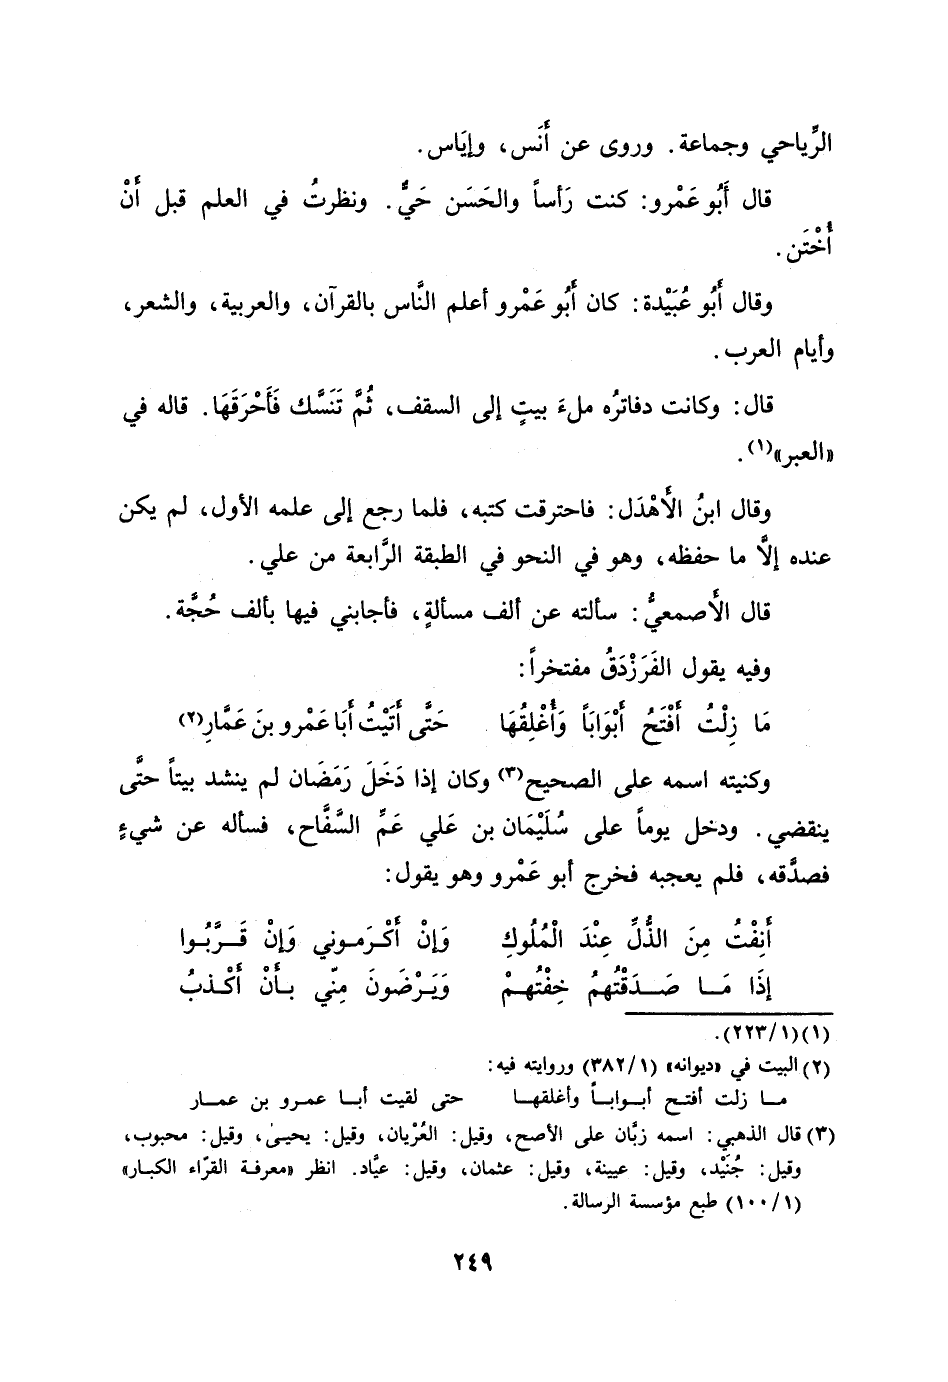 الرِّياحي وجماعة. وروى عن أَنَس، وإيَاس.
قال أَبُو عَمْرو: كنت رَأساً والحَسَن حَيٌّ. ونظرتُ في العلم قبل أَنْ
أُخْتَن.
وقال أَبُو عُبَيْدة: كان أَبُو عَمْرو أعلم النَّاس بالقرآن، والعربية، والشعر،
وأيام العرب.
قال: وكانت دفاترُه ملءَ بيتٍ إلى السقف، ثُمَّ تَنَسَّك فَأَحْرَقَهَا. قاله في
«العبر»(١).
وقال ابنُ الأَهْدَل: فاحترقت كتبه، فلما رجع إلى علمه الأول، لم يكن
عنده إلَّا ما حفظه، وهو في النحو في الطبقة الرَّابعة من علي.
قال الأَصمعيُّ: سألته عن ألف مسألةٍ، فأجابني فيها بألف حُجَّة.
وفيه يقول الفَرَزْدَقُ مفتخراً:
مَا زِلْتُ أَفْتَحُ أَبْوَابَاً وَأُغْلِقُهَا حَتَّى أَتَيْتُ أَبَا عَمْرو بنَ عَمَّارِ(٢)
وكنيته اسمه على الصحيح(٣) وكان إذا دَخَلَ رَمَضَان لم ينشد بيتاً حتَّى
ينقضي. ودخل يوماً على سُلَيْمَان بن عَلي عَمِّ السَّفَّاح، فسأله عن شيءٍ
فصدَّقه، فلم يعجبه فخرج أبو عَمْرو وهو يقول:
أَنِفْتُ مِنَ الذُّلِّ عِنْدَ الْمُلُوكِ وَإنْ أَكْرَمـوني وَإنْ قَـرَّبُـوا
إذَا مَـا صَـدَقْتُهمُ خِفْتُهـمْ وَيَـرْضَونَ مِنّي بـأَنْ أَكْـذبُ
(١) (١/٢٢٣).
(٢) البيت في «ديوانه» (١/٣٨٢) وروايته فيه:
مـا زلت أفتـح أبـوابـاً وأغلقهـا حتى لقيت أبـا عمـرو بن عمـار
(٣) قال الذهبي: اسمه زبَّان على الأصح، وقيل: العُرْيان، وقيل: يحيىٰ، وقيل: محبوب،
وقيل: جُنَيْد، وقيل: عيينة، وقيل: عثمان، وقيل: عيَّاد. انظر «معرفـة القرّاء الكبـار»
(١/١٠٠) طبع مؤسسة الرسالة.
٢٤٩